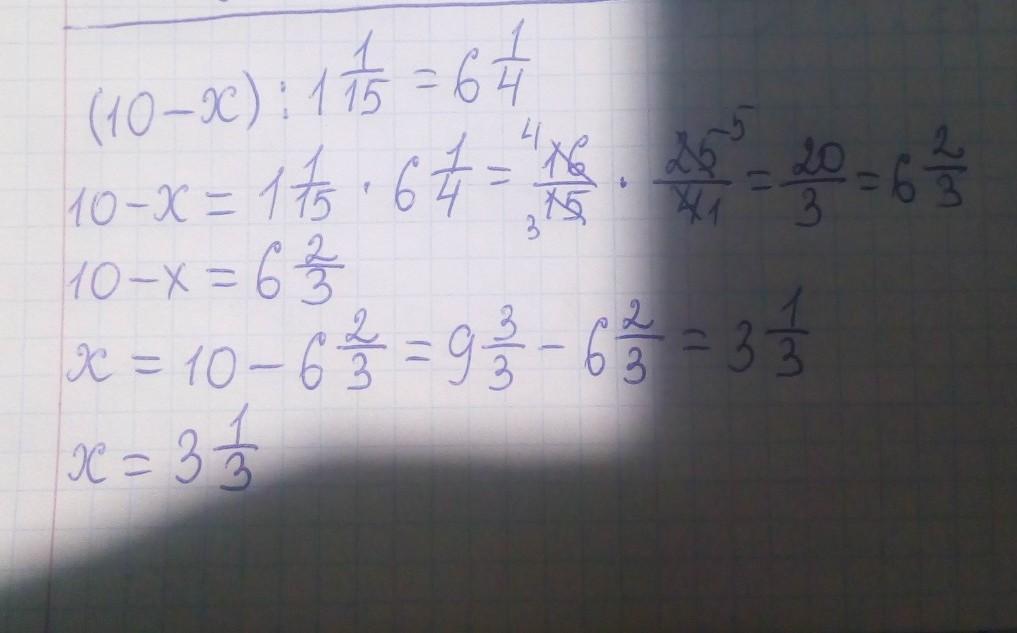 (10-x):1 1/15=6 1/4
10-x=1 1/15·6 1/4=⁴16/₃15·25⁻⁵/4₁=20/3=6 2/3
10-x=6 2/3
x=10-6 2/3=9 3/3-6 2/3=3 1/3
x=3 1/3